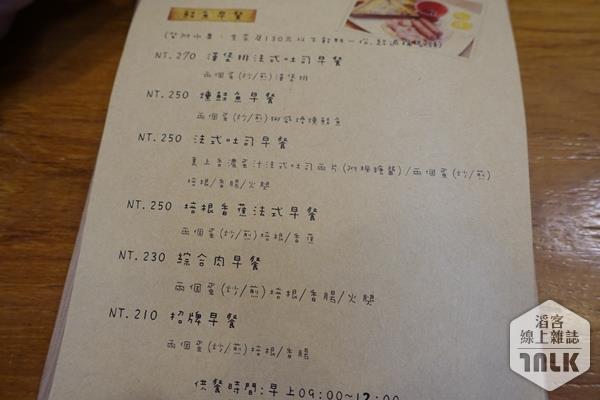 早餐
NT.270 漢堡排法式吐司早餐
兩個蛋(炒/煎)漢堡排
NT.250 燻鮭魚早餐
兩個蛋(炒/煎)燻鮭魚
NT.250 法式吐司早餐
裹上香濃蛋汁法式吐司兩片(附楓糖醬)/兩個蛋(炒/煎)
培根/香腸/火腿
NT.250 培根香蕉法式早餐
兩個蛋(炒/煎)培根/香蕉
NT.230 綜合肉早餐
兩個蛋(炒/煎)培根/香腸/火腿
NT.210 招牌早餐
兩個蛋(炒/煎)培根/香腸
供餐時間:早上09:00~12:00
滔客
線上雜誌
TALK